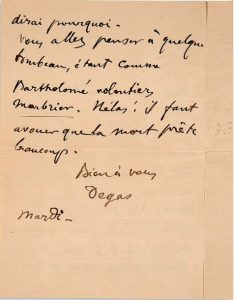 dirai pourquoi -
Vous allez penser à quelque
tombeau, étant comme
Bartholomé volontiers
marbrier. Hélas ! il faut
avouer que la mort prête
beaucoup.
Bien à vous
Degas
Mardi -